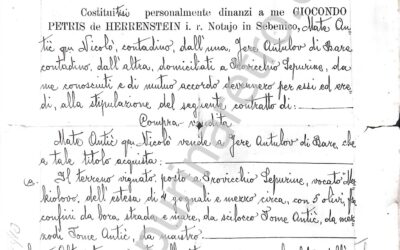 Costituitisi personalmente dinanzi a me GIOCONDO
PETRIS de HERRENSTEIN i. r. Notajo in Sebenico, Mate An-
tić qu. Nicolò, contadino, dall'una, Jere Antulov di Bare
contadino, dall'altra, domiciliati a Provicchio Sepurine, da
me conosciuti e di mutuo accordo devennero per essi ed ere-
di, alla stipulazione del seguente contratto di:
Compra vendita
Mate Antić qu. Nicolò vende a Jere Antulov di Bare, che
a tale titolo acquista:
a. Il terreno vignato, posto a Provicchio Sepurine, vocato
kiolovo, dell'estesa di 4 gornali e mezzo circa, con 5 olivi, fra
confini da bora strada e mare, da scilocco Tome Antić, da mez-
zodì Tome Antić, da maestro